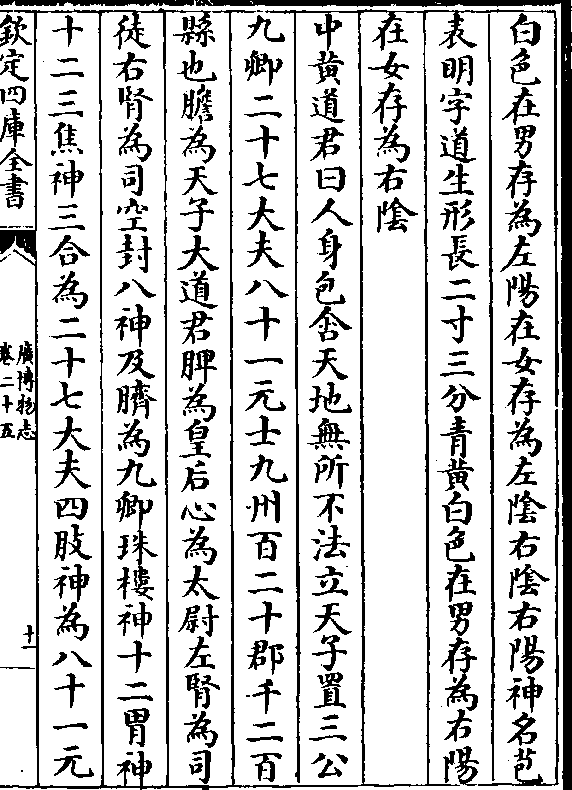 白色在男存為左陽在女存為左隂右隂右陽神名苞
表明字道生形長二寸三分青黄白色在男存為右陽
在女存為右隂
中黄道君曰人身包含天地無所不法立天子置三公
九卿二十七大夫八十一元士九州百二十郡千二百
縣也膽為天子大道君脾為皇后心為太尉左腎為司
徒右腎為司空封八神及臍為九卿珠樓神十二胃神
十二三焦神三合為二十七大夫四肢神為八十一元
欽定四庫全書
廣博物志
卷二十五
十一